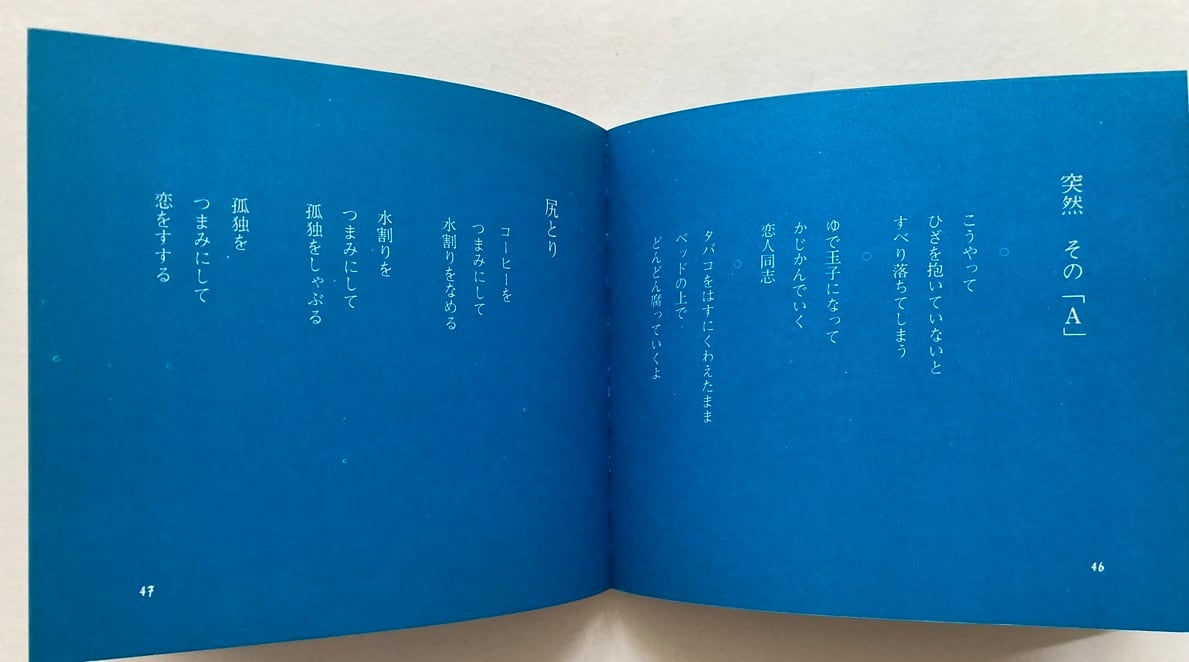 突然 その「A」
○
こうやって
ひざを抱いていないと
すべり落ちてしまう
○
ゆで玉子になって
かじかんでいく
恋人同志
○
タバコをはすにくわえたまま
ベッドの上で
どんどん腐っていくよ
46
尻とり
コーヒーを
つまみにして
水割りをなめる
水割りを
つまみにして
孤独をしゃぶる
孤独を
つまみにして
恋をすする
47